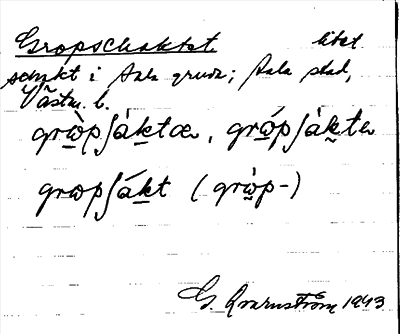 Gropschaktet litet
schakt i Sala gruva; Sala stad,
Västm. l.
grὼpʃáktæ, grώpʃàktæ
grωpʃákt (grὼp-)
G. Kvarnström 1943